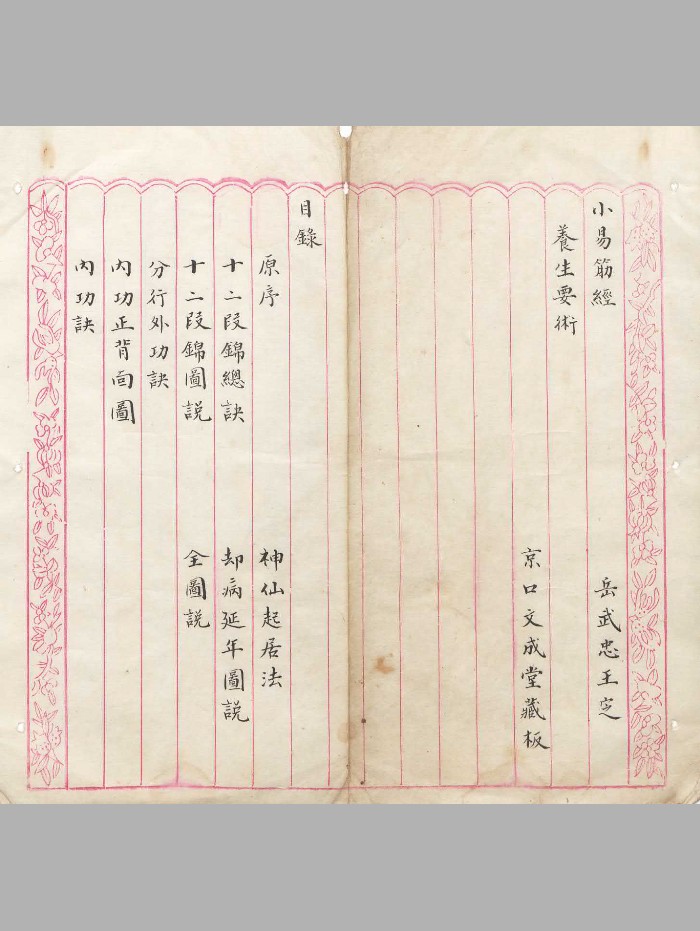 小易筋經
岳武忠王定
養生要術
京口文成堂藏板
目錄
原序
神仙起居法
十二段錦總訣
却病延年圖説
十二段錦圖説
全圖説
分行外功訣
內功正背向圖
內功訣